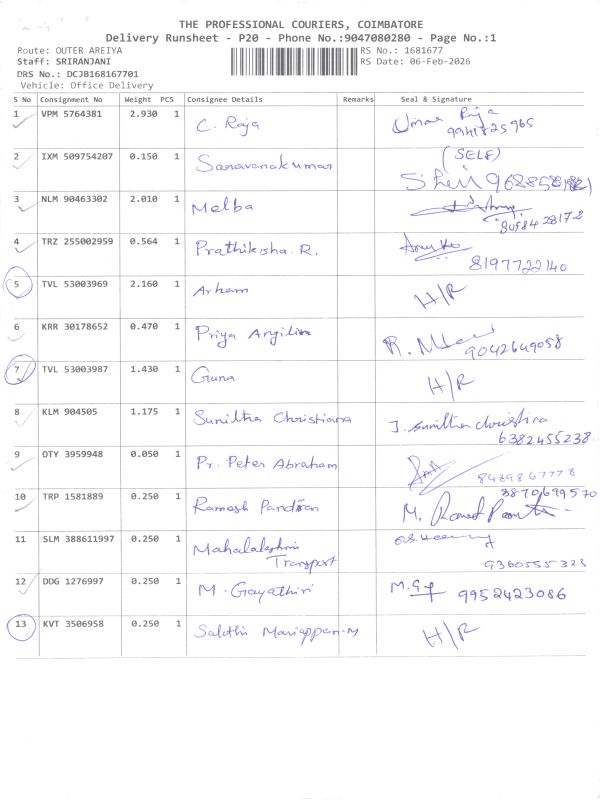 THE PROFESSIONAL COURIERS, COIMBATORE
Delivery Runsheet - P20 - Phone No.:9047080280 - Page No.:1
Route: OUTER AREIYA
RS No.: 1681677
Staff: SRIRANJANI
RS Date: 06-Feb-2026
DRS No.: DCJB168167701
Vehicle: Office Delivery
S No Consignment No Weight PCS Consignee Details Remarks Seal & Signature
1 VPM 5764381 2.930 1 C. Raja
2 IXM 509754207 0.150 1 Saravanakumar (SELF)
3 NLM 90463302 2.010 1 Melba
8058428172
4 TRZ 255002959 0.564 1 Prathiksha. R.
8197722140
5 TVL 53003969 2.160 1 H/R
6 KRR 30178652 0.470 1 Priya
9042649058
7 TVL 53003987 1.430 1 Guna H/R
8 KLM 904505 1.175 1 Sunitha Christiana J. Sunitha christina
6382455238
9 OTY 3959948 0.050 1 Pr. Peter Abraham
8489867778
8870699570
10 TRP 1581889 0.250 1 Ramesh Pandian M.
11 SLM 388611997 0.250 1 Mahalakshmi
Transport
9360555323
12 DDG 1276997 0.250 1 M. Gayathiri 9952423086
13 KVT 3506958 0.250 1 Sakthi Mariappan-M H/R